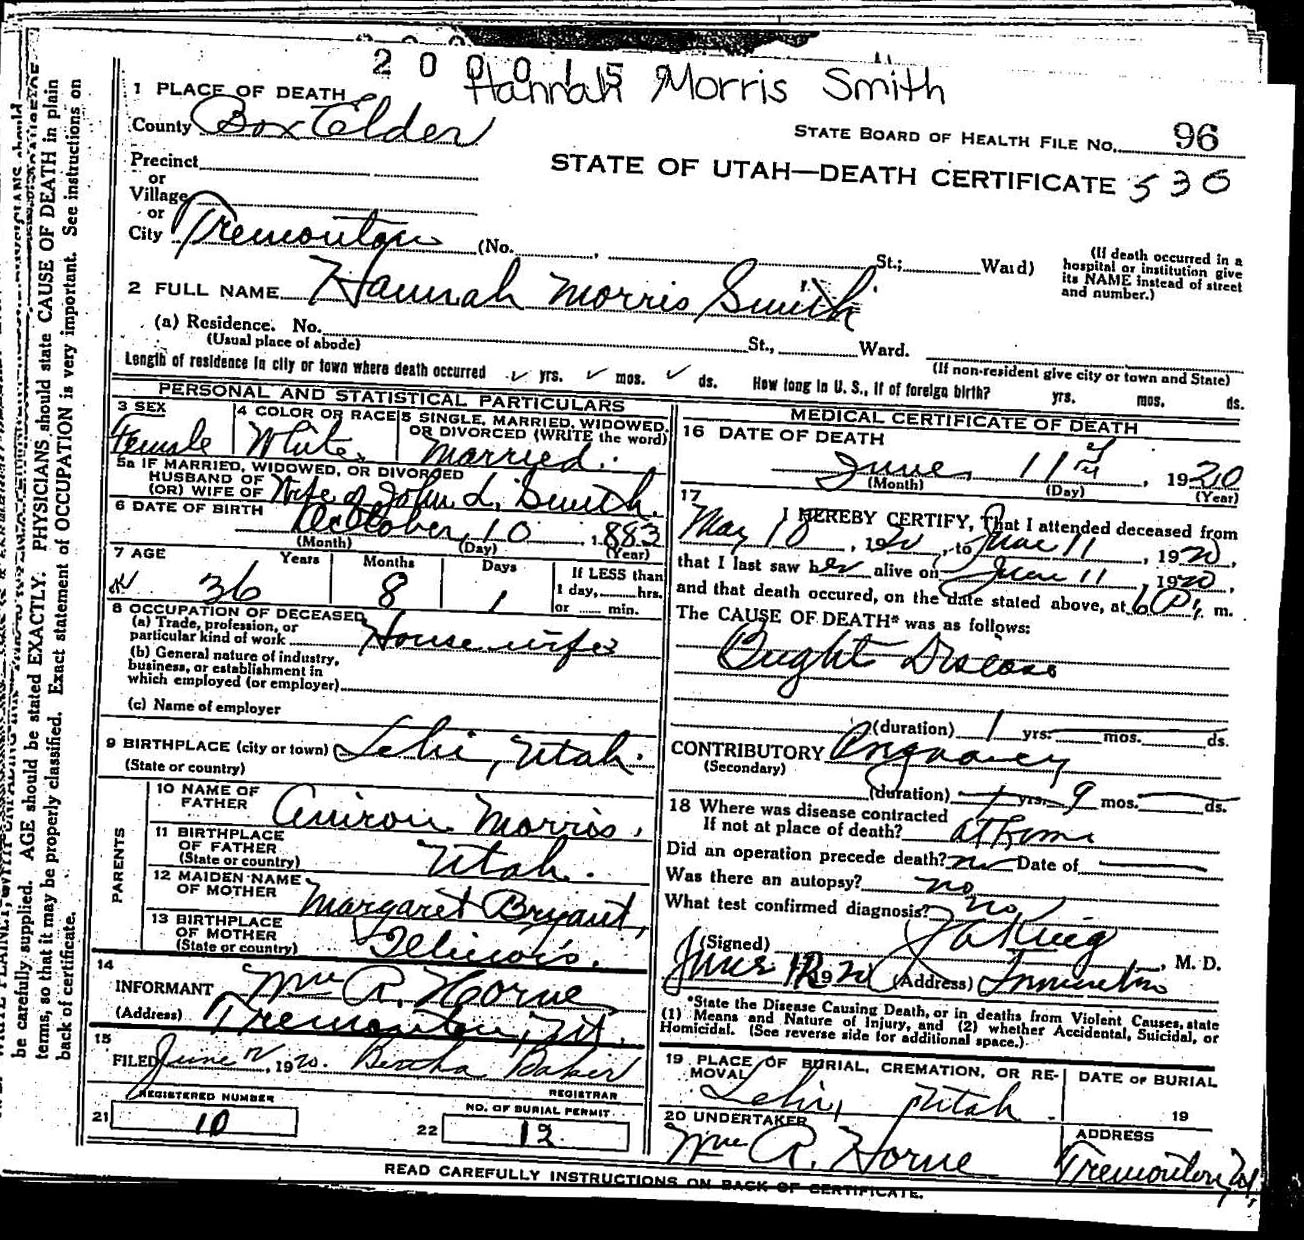 2 0 0 0 1 5
Hannah Morris Smith
1 PLACE OF DEATH
County Box Elder
STATE BOARD OF HEALTH FILE No. 96
Precinct
or
STATE OF UTAH—DEATH CERTIFICATE 530
Village
or
City Tremonton (No. St.; Ward)
(If death occurred in a
hospital or institution give
its NAME instead of street
and number.)
2 FULL NAME Hannah Morris Smith
(a) Residence. No. St., Ward.
(Usual place of abode)
(If non-resident give city or town and State)
Length of residence in city or town where death occurred yrs. mos. ds. How long in U. S., if of foreign birth? yrs. mos. ds.
PERSONAL AND STATISTICAL PARTICULARS
3 SEX
Female
4 COLOR OR RACE
White
5 SINGLE, MARRIED, WIDOWED,
OR DIVORCED (WRITE the word)
Married.
5a IF MARRIED, WIDOWED, OR DIVORCED
HUSBAND OF
(OR) WIFE OF Wife of John L. Smith.
6 DATE OF BIRTH October, 10 1883
(Month) (Day) (Year)
7 AGE Years Months Days
36 8 1
If LESS than
1 day, hrs.
or min.
8 OCCUPATION OF DECEASED
(a) Trade, profession, or
particular kind of work House wife
(b) General nature of industry,
business, or establishment in
which employed (or employer)
(c) Name of employer
9 BIRTHPLACE (city or town) Lehi, Utah.
(State or country)
PARENTS
10 NAME OF
FATHER Morris.
11 BIRTHPLACE
OF FATHER
(State or country) Utah.
12 MAIDEN NAME
OF MOTHER Margaret Bryant,
13 BIRTHPLACE
OF MOTHER
(State or country) Illinois.
14
INFORMANT Mrs A. Horne
(Address) Tremonton, Ut.
15
FILED June 12, 1920. Bertha Baker
REGISTRAR
REGISTERED NUMBER
21 10
NO. OF BURIAL PERMIT
22 12
MEDICAL CERTIFICATE OF DEATH
16 DATE OF DEATH
June, 11 1920
(Month) (Day) (Year)
17
I HEREBY CERTIFY, That I attended deceased from
May 10, 1920, to June 11, 1920,
that I last saw her alive on June 11, 1920,
and that death occured, on the date stated above, at 6 P. m.
The CAUSE OF DEATH* was as follows:
Bright Disease
(duration) 1 yrs. mos. ds.
CONTRIBUTORY
(Secondary)
(duration) yrs. 9 mos. ds.
18 Where was disease contracted
If not at place of death? at home
Did an operation precede death? no Date of
Was there an autopsy? no
What test confirmed diagnosis? no
(Signed) M. D.
June 12 1920 (Address) Tremonton
*State the Disease Causing Death, or in deaths from Violent Causes, state
(1) Means and Nature of Injury, and (2) whether Accidental, Suicidal, or
Homicidal. (See reverse side for additional space.)
19 PLACE OF BURIAL, CREMATION, OR RE-
MOVAL
Lehi, Utah
DATE OF BURIAL
19
20 UNDERTAKER
Mrs A. Horne
ADDRESS
Tremonton, Ut.
READ CAREFULLY INSTRUCTIONS ON BACK OF CERTIFICATE.
be carefully supplied. AGE should be stated EXACTLY. PHYSICIANS should state CAUSE OF DEATH in plain
terms, so that it may be properly classified. Exact statement of OCCUPATION is very important. See instructions on
back of certificate.